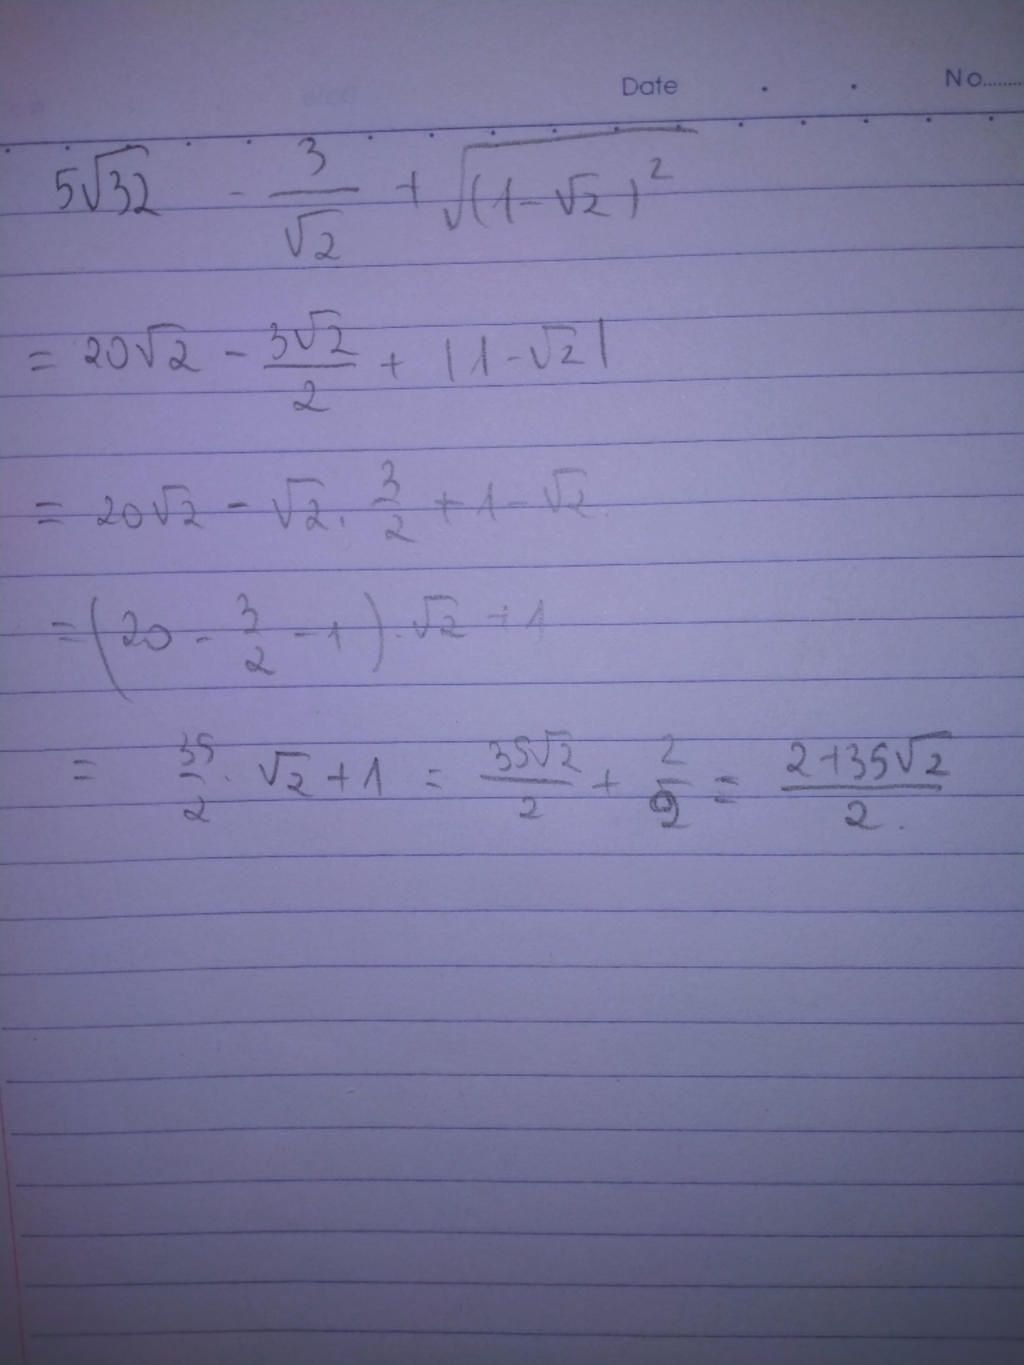 Date . . No........
5√32 - 3/√2 + √(1-√2)²
= 20√2 - 3√2/2 + |1-√2|
= 20√2 - √2 . 3/2 + 1 - √2.
= (20 - 3/2 - 1) . √2 + 1
= 35/2 . √2 + 1 = 35√2/2 + 2/2 = 2+35√2/2.